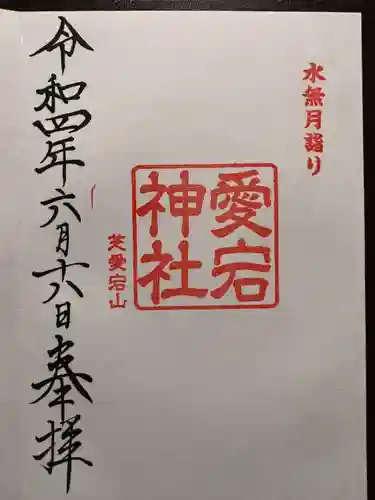 水無月詣り
愛宕
神社
芝愛宕山
令和四年六月十六日奉拝